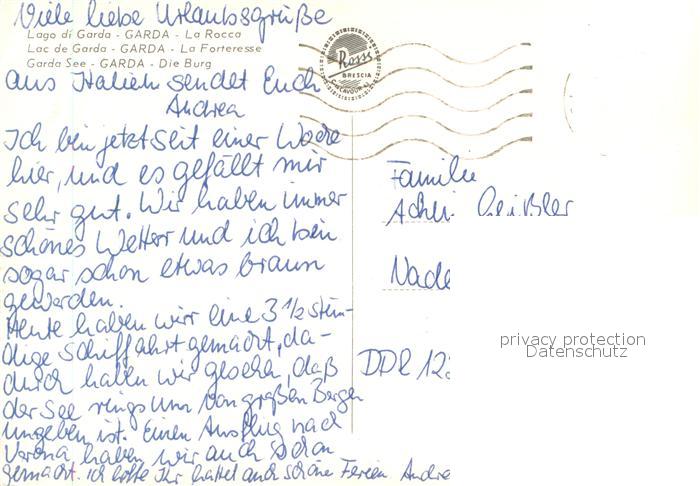 Viele liebe Urlaubsgrüße
Lago di Garda - GARDA - La Rocca
Lac de Garda - GARDA - La Forteresse
Garda See - GARDA - Die Burg
aus Italien sendet Euch
Andrea
Ich bin jetzt seit einer Woche
hier, und es gefällt mir
sehr gut. Wir haben immer
schönes Wetter und ich bin
sogar schon etwas braun
geworden.
Heute haben wir eine 3 1/2 stün-
dige Schiffahrt gemacht, da-
durch haben wir gesehen, daß
der See rings um von großen Bergen
umgeben ist. Einen Ausflug nach
Verona haben wir auch schon
gemacht. Ich hoffe Ihr hattet auch schöne Ferien Andre
Rossi
BRESCIA
Familie
Geißler
DDR 12
privacy protection
Datenschutz